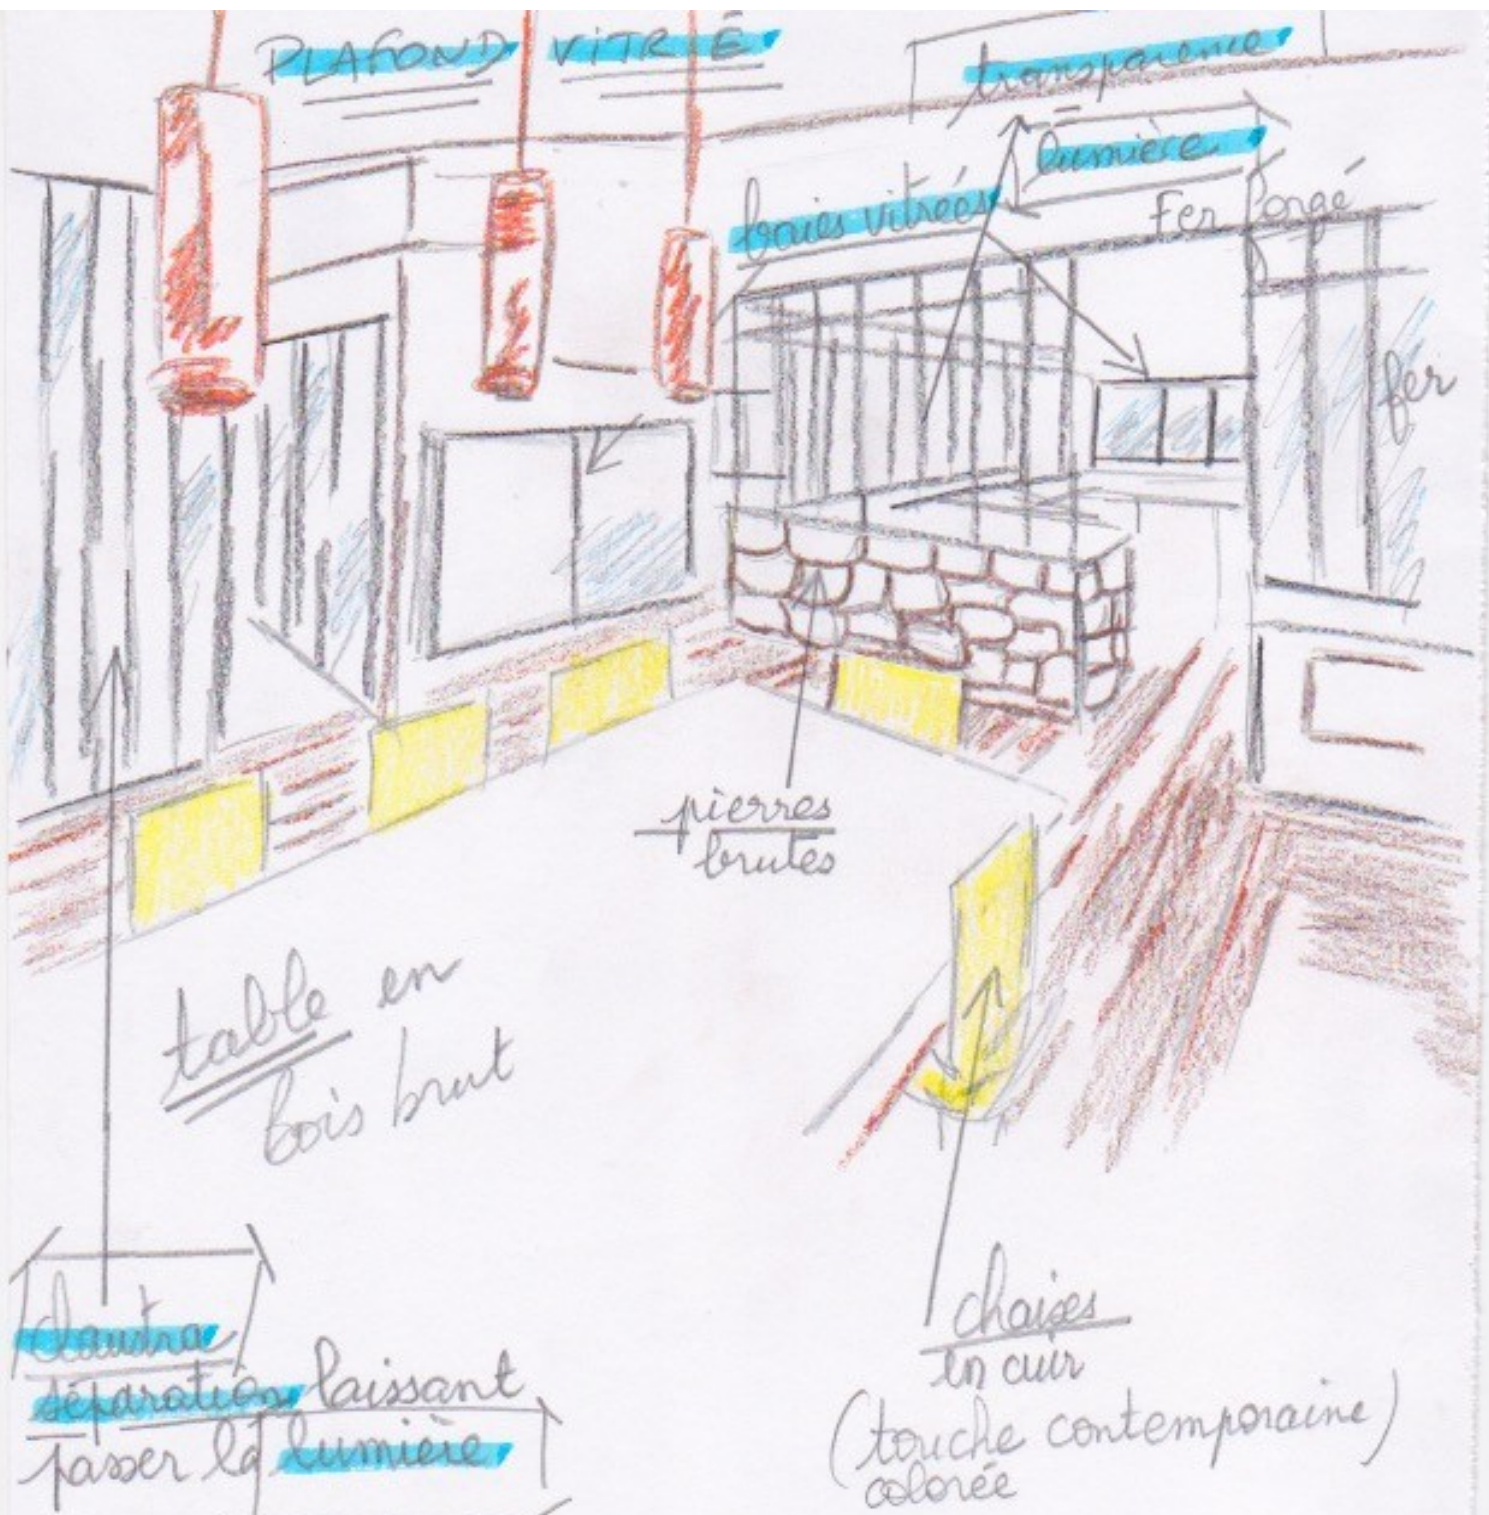 PLAFOND VITRÉ
transparence
lumière
baies vitrées
Fer forgé
fer
pierres
brutes
table en
bois brut
claustra
séparation laissant
passer la lumière
chaises
en cuir
(touche contemporaine)
colorée